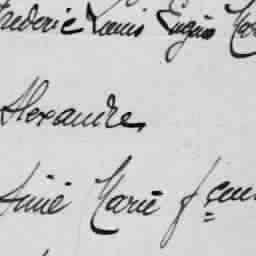 Frederic Louis Eugène
Alexandre
Aimé Marie